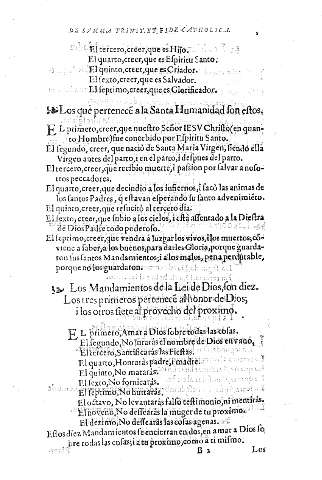 DE SVMMA TRINIT. ET, FIDE CATHOLICA. 2
El tercero, creer, que es Hijo.
El quarto, creer, que es Espiritu Santo.
El quinto, creer, que es Criador.
El sexto, creer, que es Salvador.
El septimo, creer, que es Glorificador.
Los que pertenecē a la Santa Humanidad son estos.
EL primero, creer, que nuestro Señor IESV Christo (en quanto Hombre) fue concebido por Espiritu Santo.
El segundo, creer, que naciò de Santa Maria Virgen, siendo ella
Virgen antes del parto, i en el parto, i despues del parto.
El tercero, creer, que recibiò muerte, i passion por salvar a nosotros
peccadores.
El quarto, creer, que decindiò a los infiernos, i sacò las animas de
los santos Padres, q̄ estavan esperando su santo advenimiēto.
El quinto, creer, que resucitò al tercero dia.
El sexto, creer, que subiò a los cielos, i està assentado a la Diestra
de Dios Padre todo poderoso.
El septimo, creer, que vendrà a juzgar los vivos, i los muertos, conviene
a saber, a los buenos, para darles Gloria, porque guardaron
sus santos Mandamientos; i a los malos, pena perdurable,
porque no los guardaron.
Los Mandamientos de la Lei de Dios, son diez.
Los tres primeros pertenecē al honor de Dios;
i los otros siete al provecho del proximo.
EL primero, Amar a Dios sobre todas las cosas.
El segundo, No jurarás el nombre de Dios en vano,
El tercero, Santificarás las Fiestas.
El quarto, Honrarás padre, i madre.
El quinto, No matarás.
El sexto, No fornicarás.
El septimo, No hurtarás.
El octavo, No levantarás falso testimonio, ni mentirás.
El noveno, No dessearás la muger de tu proximo.
El dezimo, No dessearás las cosas agenas.
Estos diez Mandamientos se encierran en dos, en amar a Dios sobre
todas las cosas; i a tu proximo, como a ti mismo.
B 2 Los